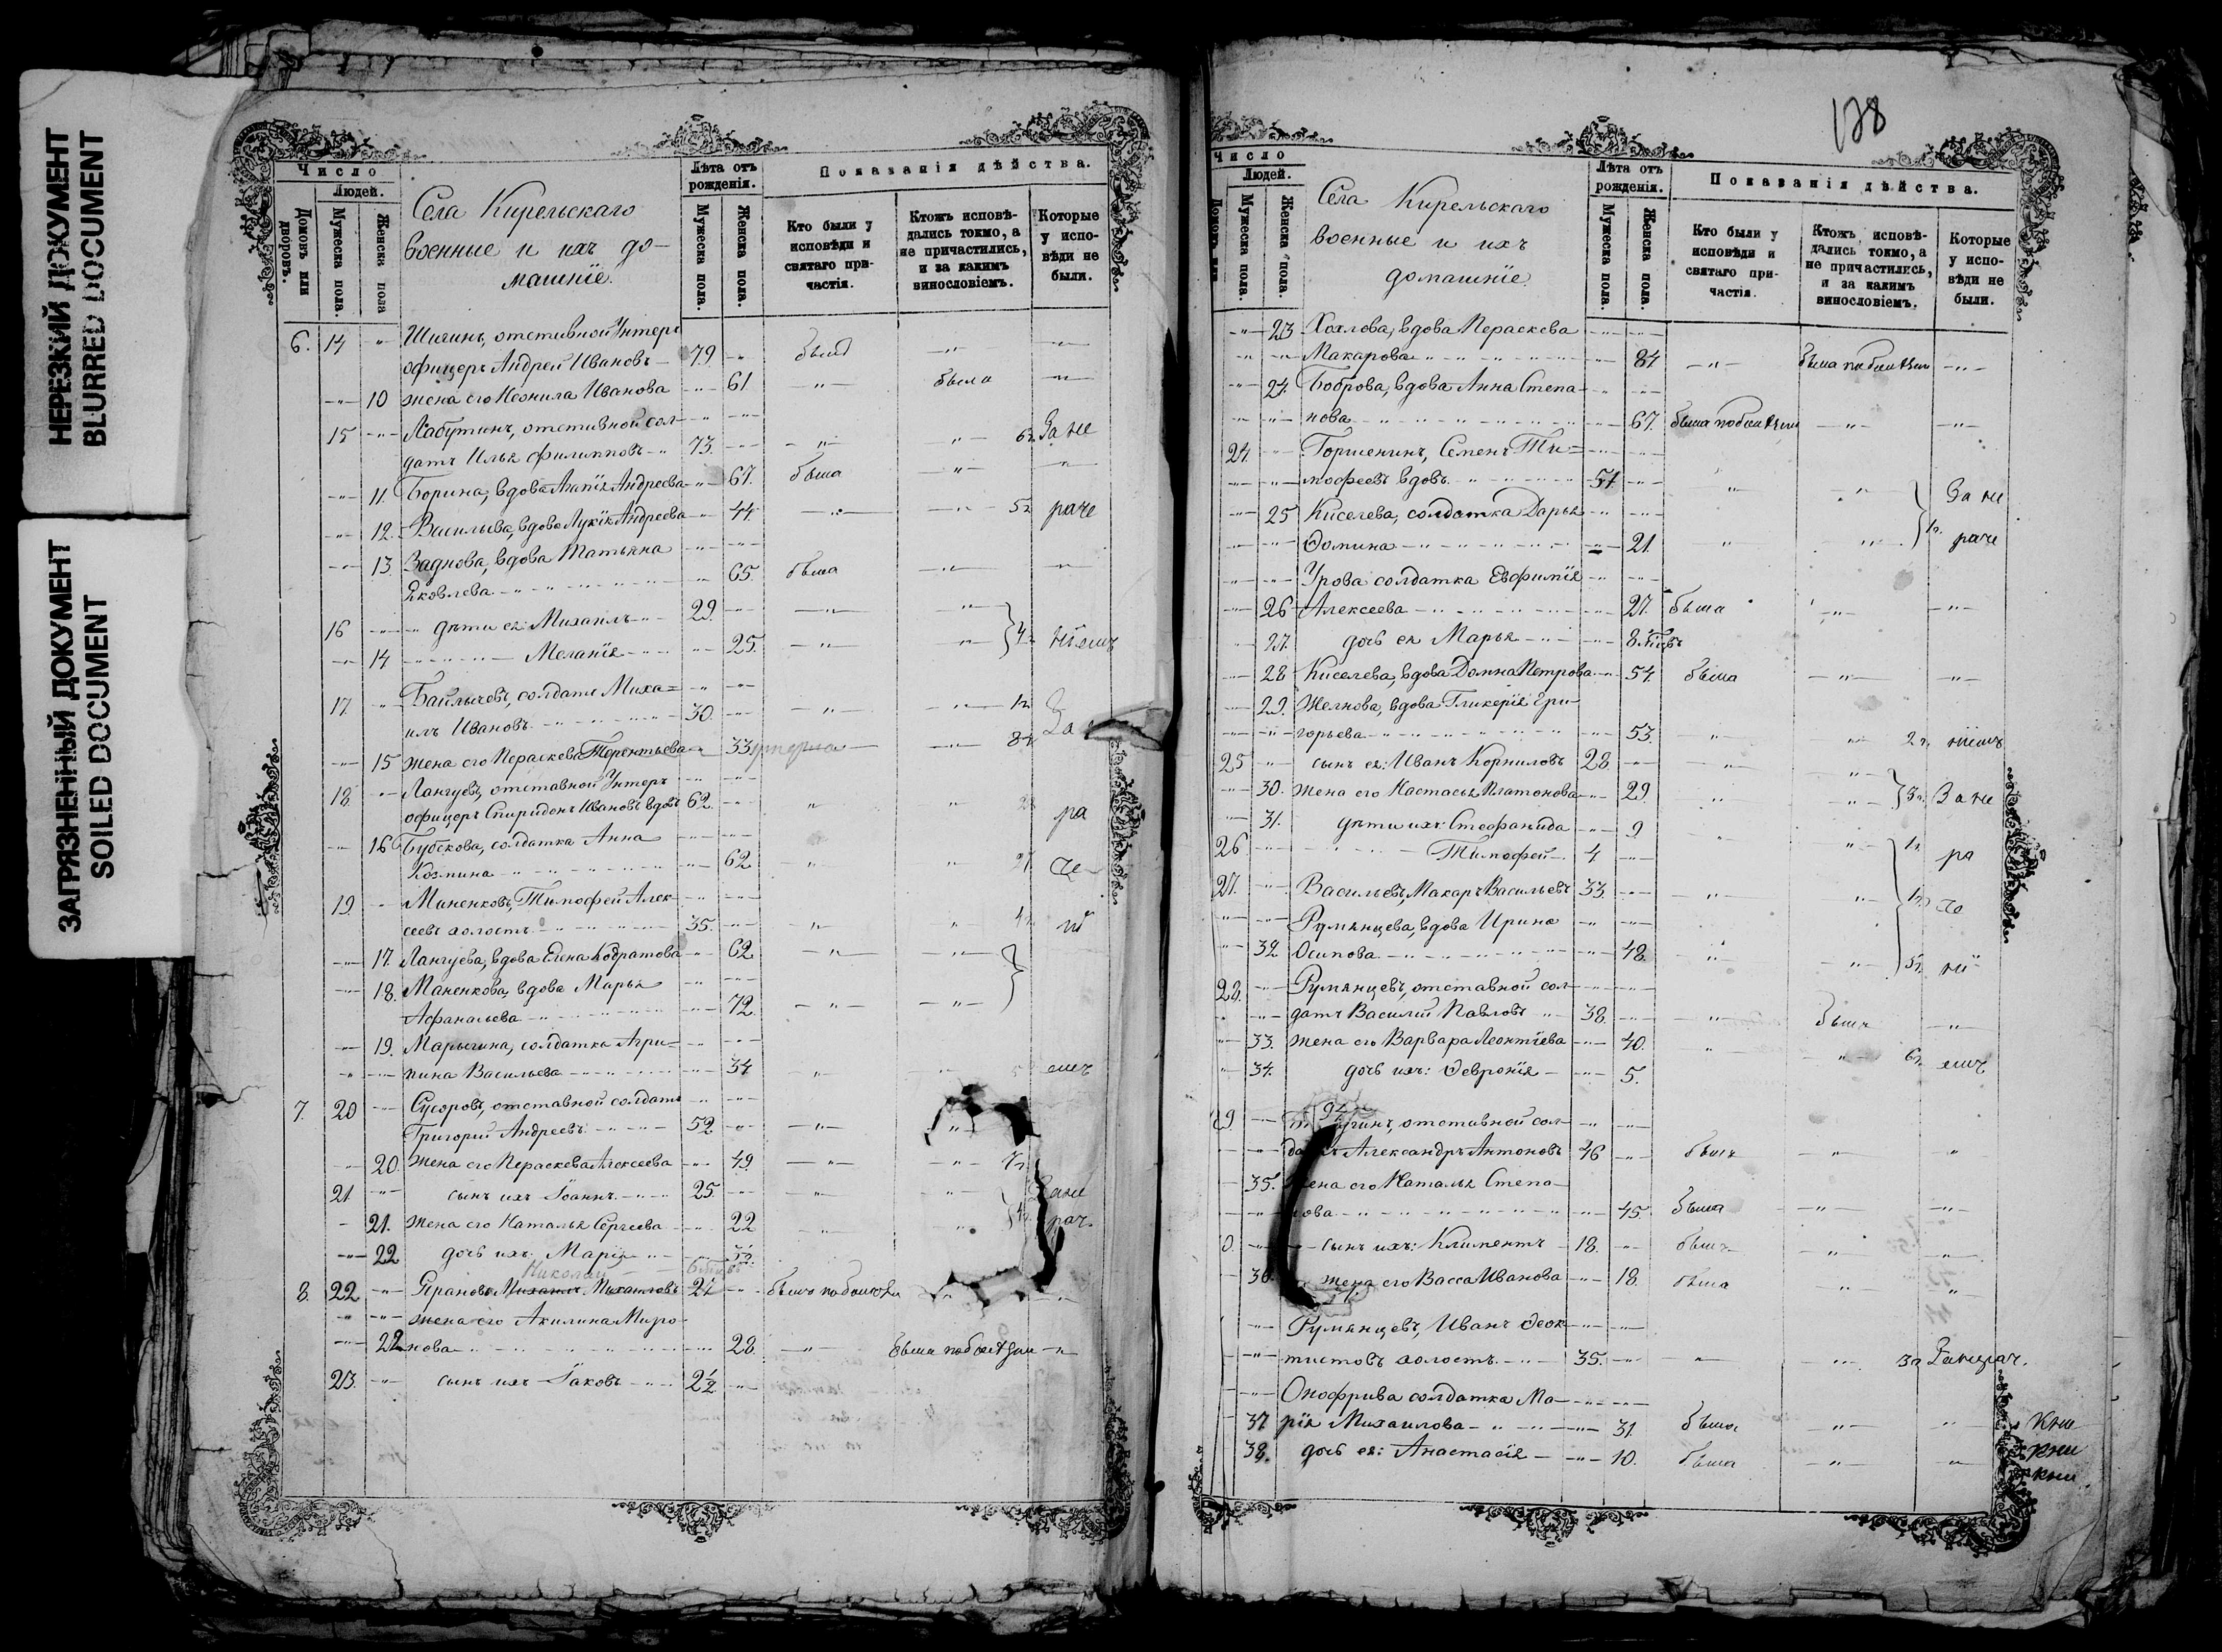 НЕРЕЗКИЙ ДОКУМЕНТ
BLURRED DOCUMENT
ЗАГРЯЗНЕННЫЙ ДОКУМЕНТ
SOILED DOCUMENT
Число
Людей.
Домовъ или дворовъ.
Мужеска пола.
Женска пола
Села Кирельскаго
военные и ихъ до-
машніе.
Лѣта отъ рожденія.
Мужеска пола.
Женска пола.
Показанія дѣйства.
Кто были у исповѣди и святаго при-частія.
Ктожъ исповѣ-дались токмо, а не причастились, и за какимъ винословіемъ.
Которые у испо-вѣди не были.
6. 14 отставной Унтеръ
офицеръ Андрей Ивановъ 79 былъ
10 жена его Неонила Иванова 61 была
15 Лабутинъ, отставной сол-
датъ Илья Филипповъ 73. За не
11. Борина, вдова Агапія Андреева 67. была
12. Васильева, вдова Лукія Андреева 44 раче
13. Заднова, вдова Татьяна
Яковлева 65. была
16 дѣти ея: Михаилъ 29.
14 Меланія 25. ніемъ
17. солдатъ Миха=
илъ Ивановъ 30. За
15 жена его Параскева Терентьева 33
18. Лангуевъ, отставной Унтеръ
офицеръ Спиридонъ Ивановъ вдовъ 62. ра
16 солдатка Анна
Козмина 62 че
19. Маненковъ, Тимофей Алек-
сеевъ холостъ 35. ні
17. Лангуева, вдова Елена Кодратова 62
18. Маненкова, вдова Марья
Афанасьева 72.
19. Марычина, солдатка Агри=
пина Васильева 34 емъ
7. 20 отставной солдатъ
Григорій Андреевъ 52
20. жена его Параскева Алексеева 49.
21 сынъ ихъ Іоаннъ 25. Зане
21. жена его Наталья Сергеева 22 рач.
22 дочь ихъ: Марія
Николай
8. 22 Михаилъ Михаиловъ 24
жена его Акилина Миро-
22 нова 28.
23. сынъ ихъ Іаковъ 2½
138
Число
Людей.
Мужеска пола.
Женска пола.
Села Кирельскаго
военные и ихъ
домашніе.
Лѣта отъ рожденія.
Мужеска пола.
Женска пола.
Показанія дѣйства.
Кто были у исповѣди и святаго при-частія.
Ктожъ исповѣ-дались токмо, а не причастились, и за какимъ винословіемъ.
Которые у испо-вѣди не были.
23 Хохлова, вдова Параскева
Макарова 84 была по болѣзни
24. Боброва, вдова Анна Степа-
нова 67. была по болѣзни
24. Горшенинъ, Семенъ Ти=
мофеевъ вдовъ 57. За не
25 Киселева, солдатка Дарья
Фомина 21. раче
Урова солдатка Евфимія
26 Алексеева 27. была
27. дочь ея Марья 8 мѣс.
28 Киселева, вдова Домна Петрова 54. была
29. Желнова, вдова Гликерія Гри-
горьева 53. 2 г. ніемъ
25 сынъ ея: Иванъ Корниловъ 28.
30. жена его Настасья Платонова 29. 3 г. За не
31. дѣти ихъ: Стефанида 9
26. Тимофей 4 ра
27. Васильевъ, Макаръ Васильевъ 33. че
Румянцева, вдова Ирина
32 Осипова 48. ні
28. Румянцевъ, отставной сол-
датъ Василій Павловъ 38. былъ
33. жена его Варвара Леонтіева 40. емъ
34. дочь ихъ: Февронія 5.
отставной сол-
Александръ Антоновъ 46 былъ
35. жена его Наталья Степа-
нова 45. была
сынъ ихъ: Климентъ 18. былъ
36. жена его Васса Иванова 18. была
Румянцевъ, Иванъ Феок-
тистовъ холостъ 35.
Онофріва солдатка Ма-
37 рія Михаилова 31. была
38. дочь ея: Анастасія 10. была